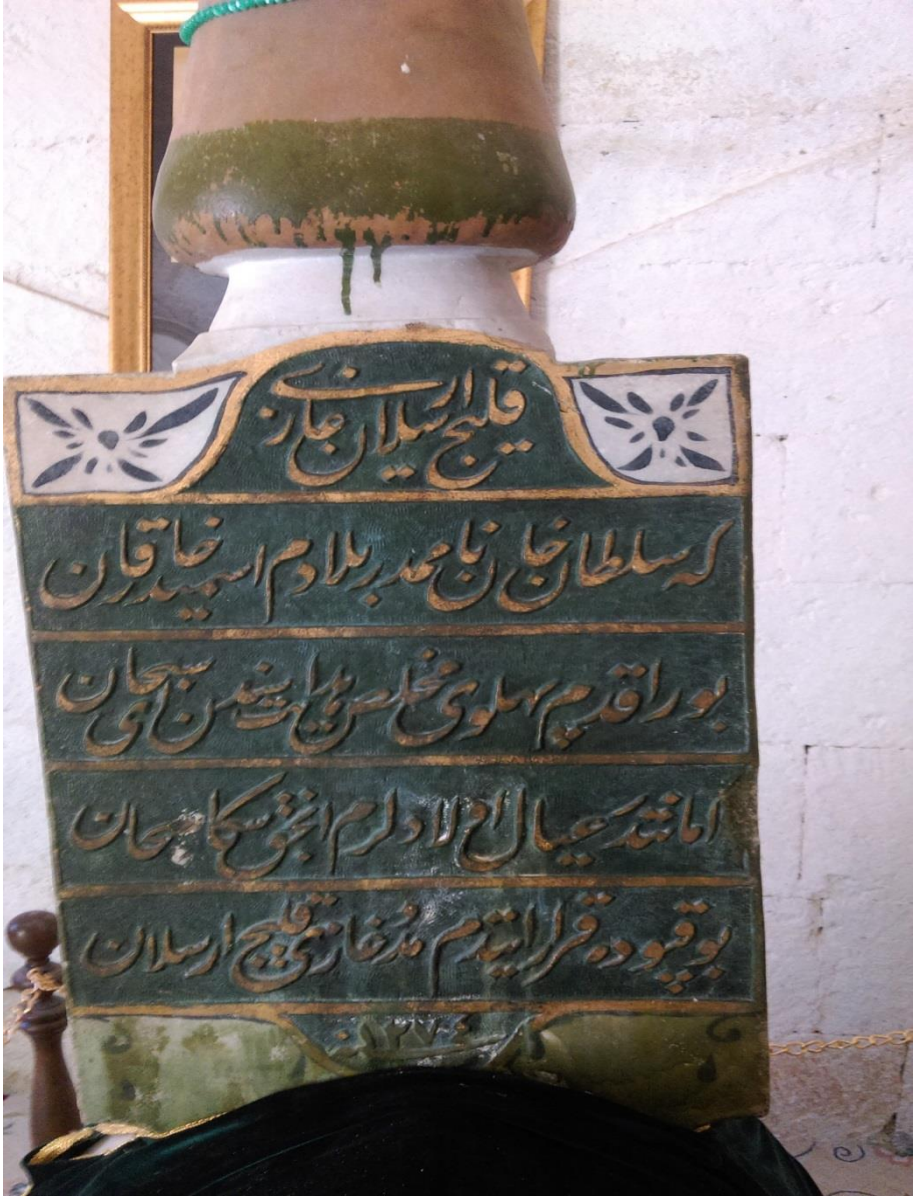 قلیج ارسلان غازی
که سلطان خان نامدر بلادم اسپیدر خاقان
بوراقدم پهلوی مخلص هدایت سندن ای سبحان
امانتدر عیال اولادلرم انجق سکا سبحان
بو قپوده قرار ایتدم مدد غازی قلیج ارسلان
سنه ١٢٧٤